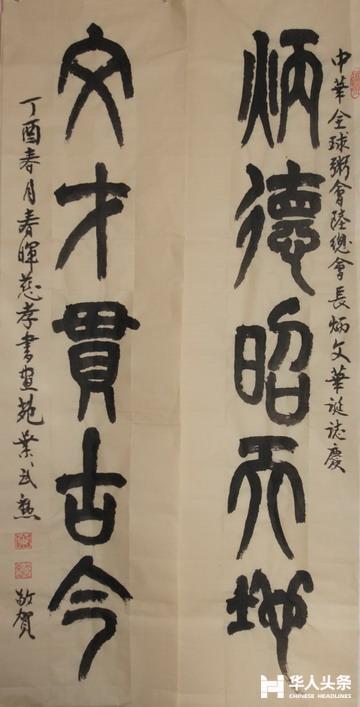 中華全球粥會陸總會長炳文華誕誌慶
炳德昭天地
文才貫古今
丁酉春月春暉慈孝書畫苑業武
敬賀
华人头条
CHINESE HEADLINES